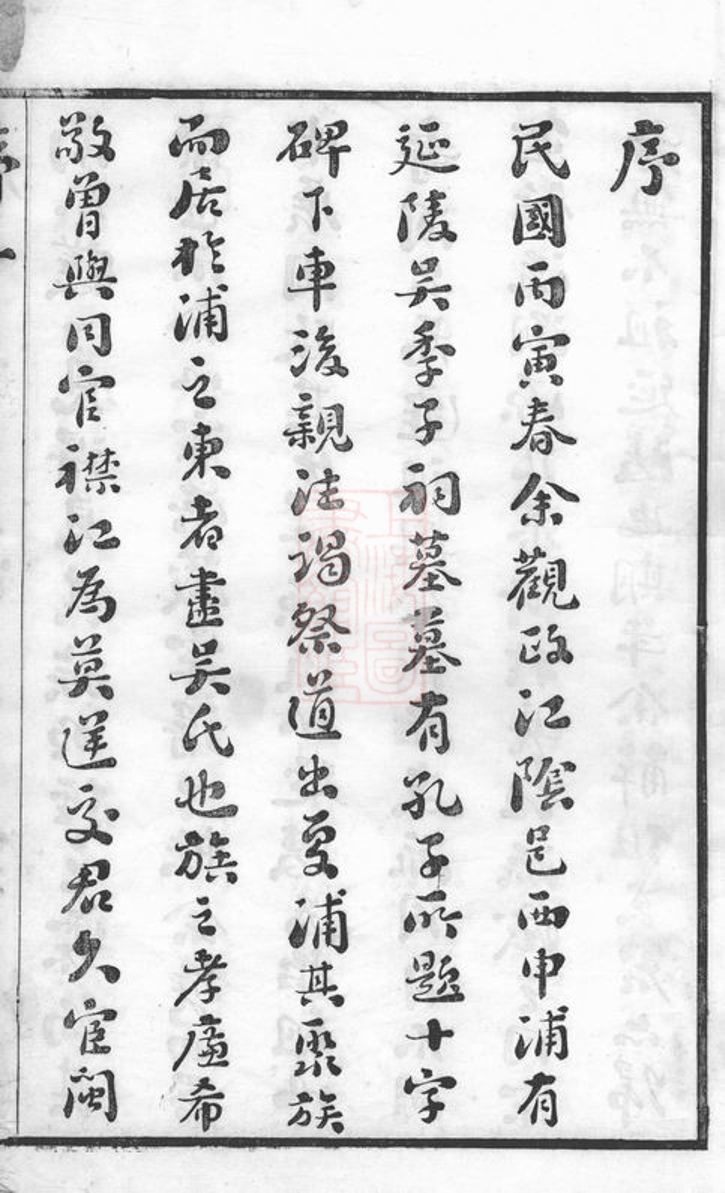 序
民國丙寅春余觀政江陰邑西申浦有
延陵吳季子祠墓墓有孔子所題十字
碑下車後親往謁祭道出夏浦其聚族
而居於浦之東者盡吳氏也族之孝廉希
敬曾與同官襟江為莫逆交君久宦閩
序一